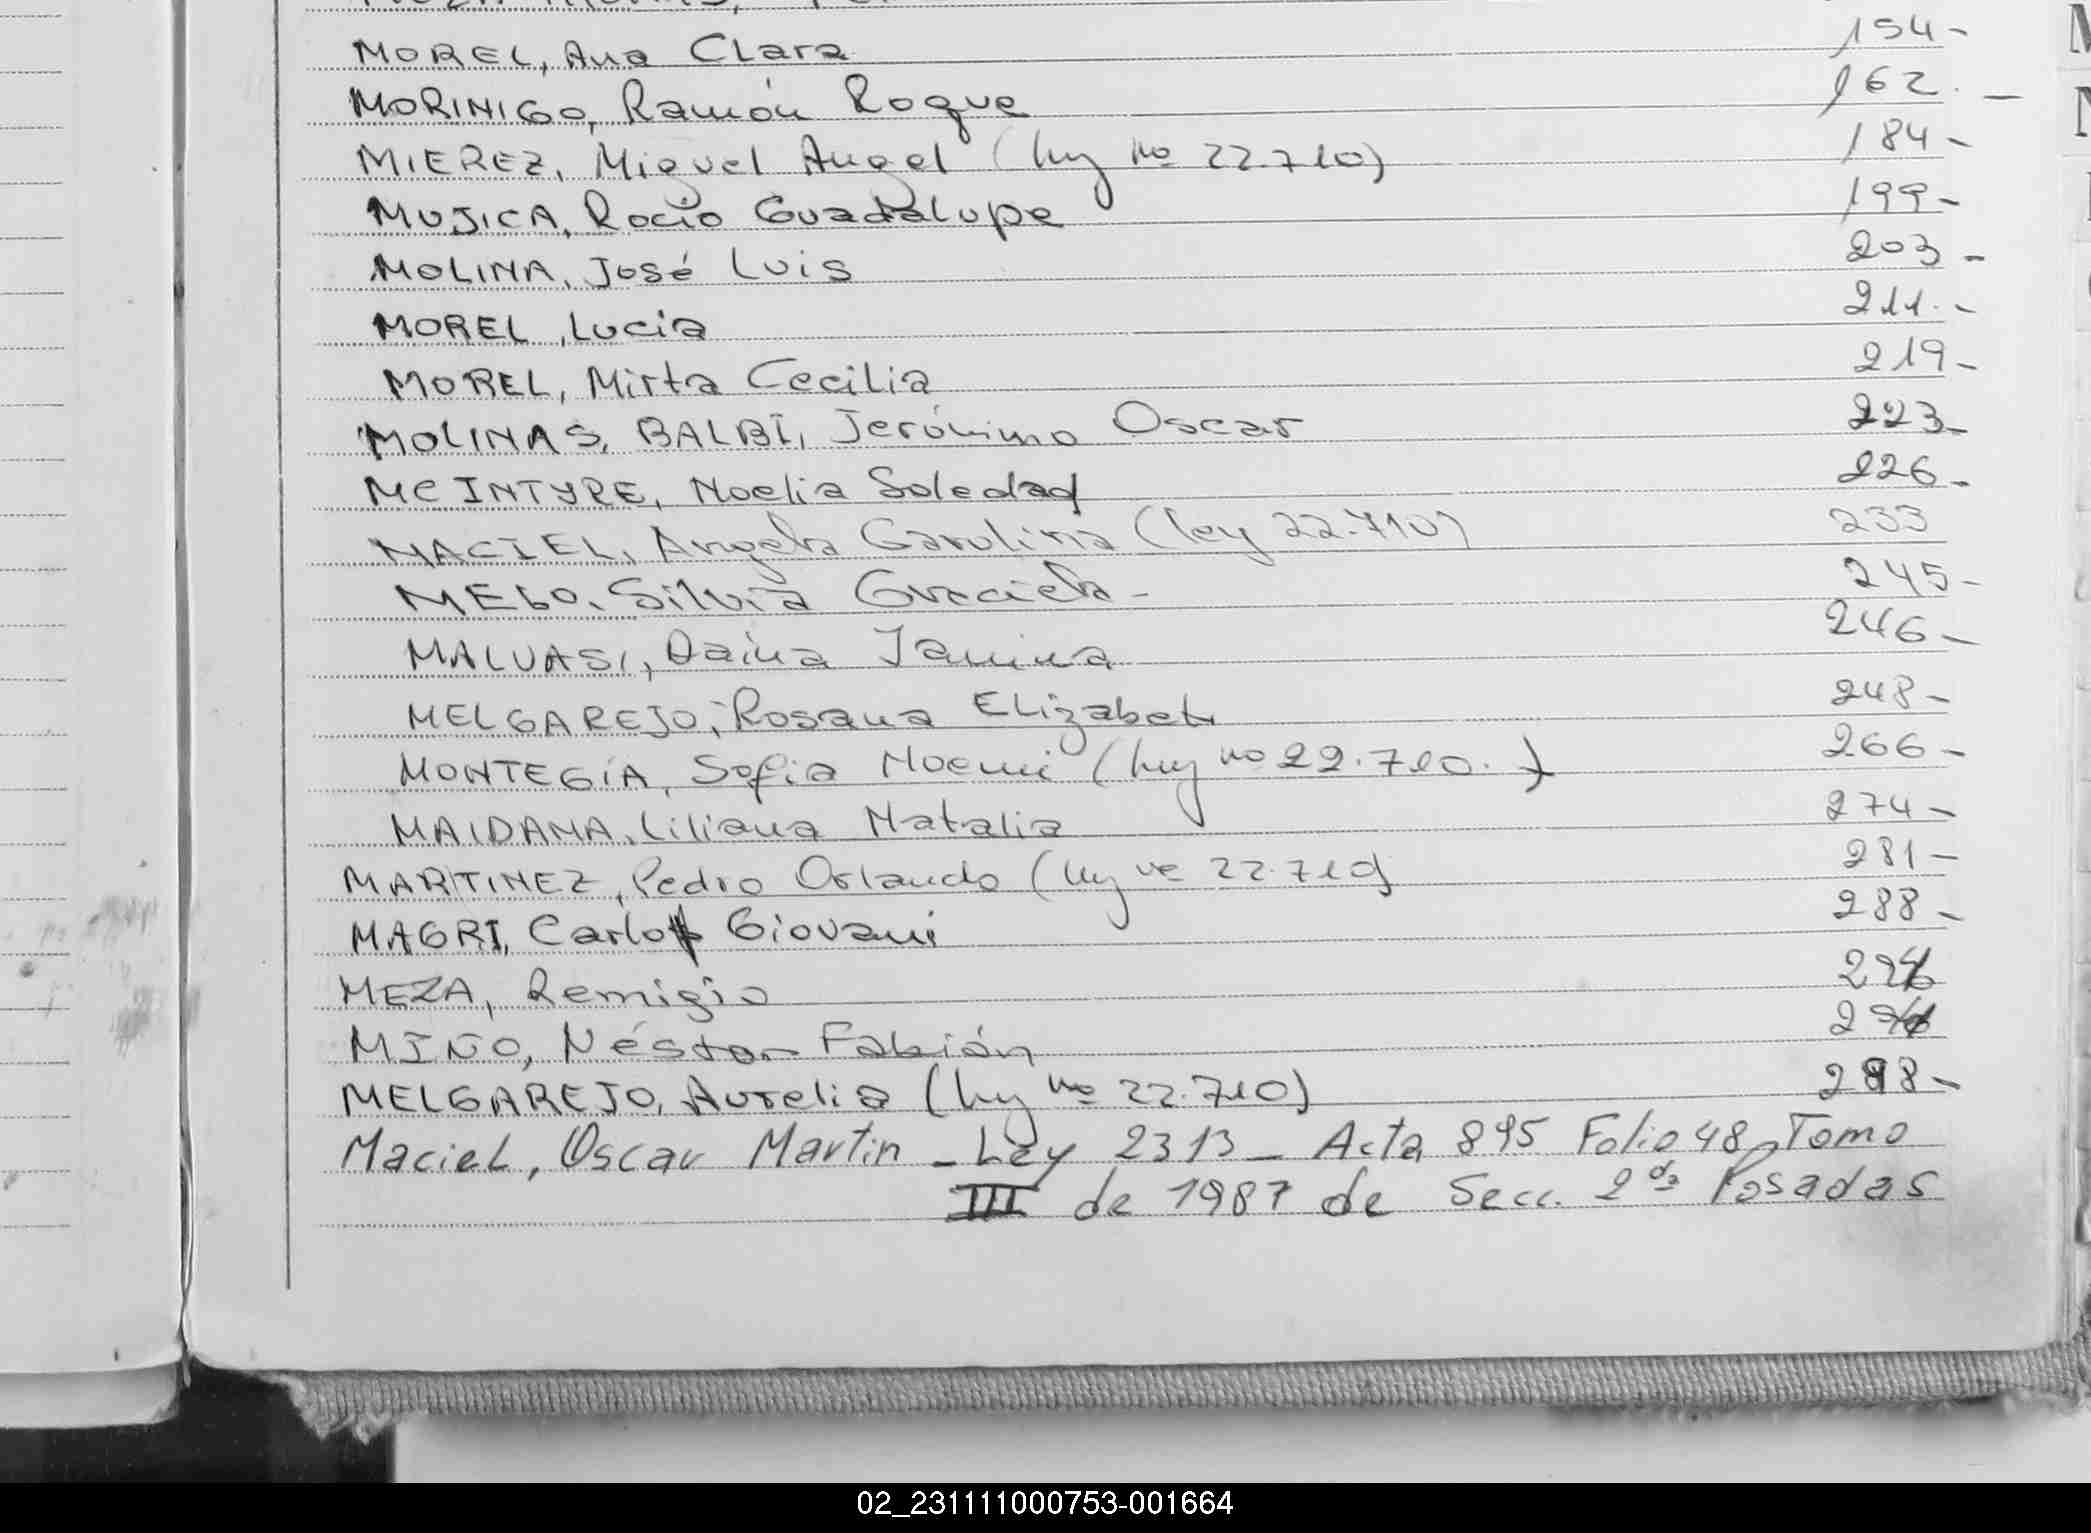 MOREL, Ana Clara 154-
MORINIGO, Ramón Roque 162. -
MIEREZ, Miguel Angel (ley no 22.710) 184-
MUJICA, Rocío Guadalupe 199-
MOLINA, José Luis 203-
MOREL, Lucia 211.-
MOREL, Mirta Cecilia 219-
MOLINAS, BALBI, Jerónimo Oscar 223-
MC INTYRE, Noelia Soledad 226-
MACIEL, Angela Carolina (ley 22.710) 233
MELO, Silvia Graciela - 245-
MALVASI, Daina Janina 246-
MELGAREJO, Rosana Elizabeth 248-
MONTEGÍA, Sofia Noemi (ley no 22.710.) 266-
MAIDANA, Liliana Natalia 274-
MARTINEZ, Pedro Orlando (ley no 22.710) 281-
MAGRI, Carlo Giovani 288-
MEZA, Remigio
MIÑO, Néstor Fabián
MELGAREJO, Aurelia (ley no 22.710) 298-
Maciel, Oscar Martin - Ley 2313 - Acta 895 Folio 48 Tomo
III de 1987 de Secc. 2da Posadas
02_231111000753-001664